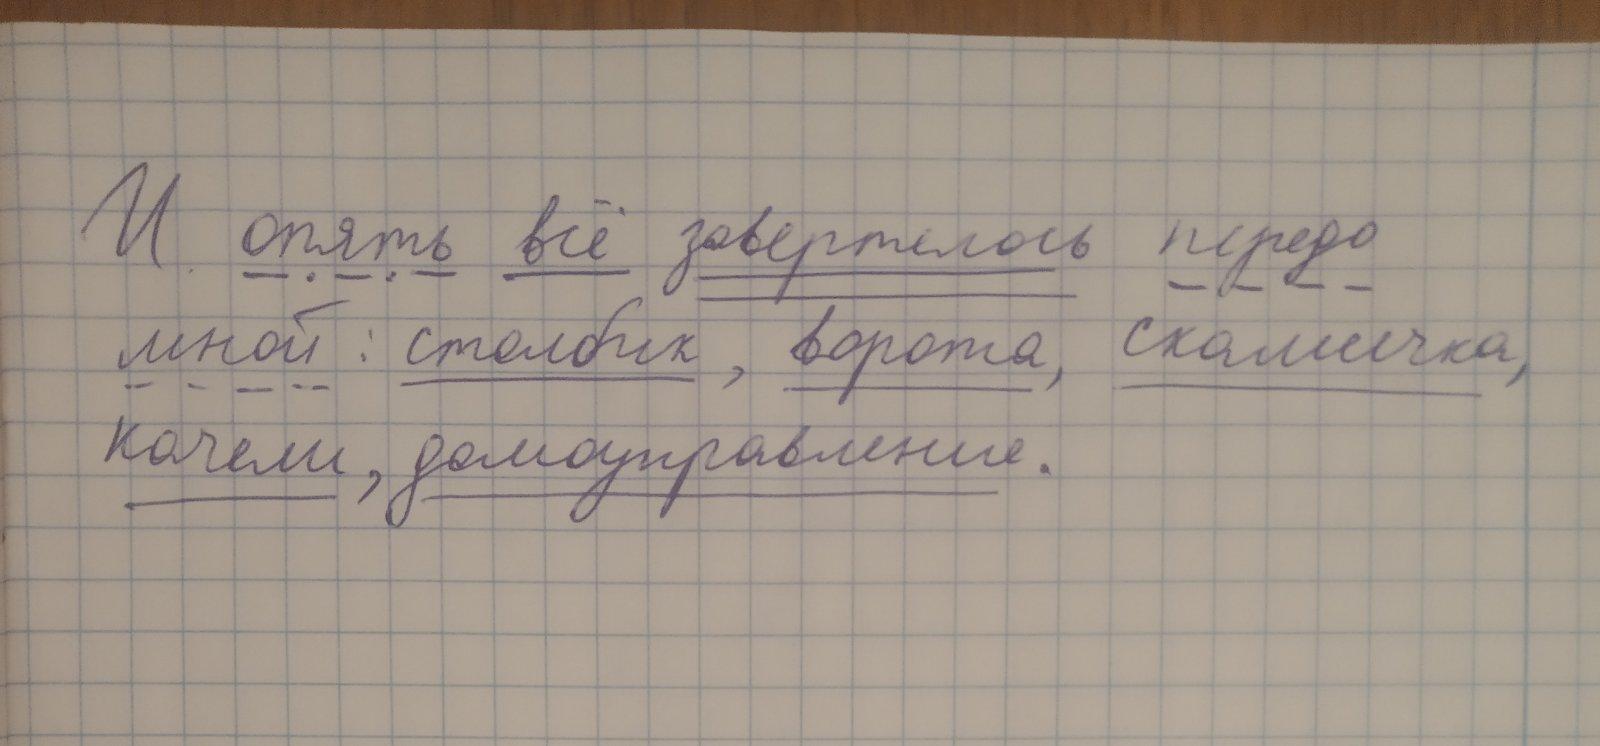 И опять всё завертелось передо
мной: столбик, ворота, скамеечка,
качели, домоуправление.